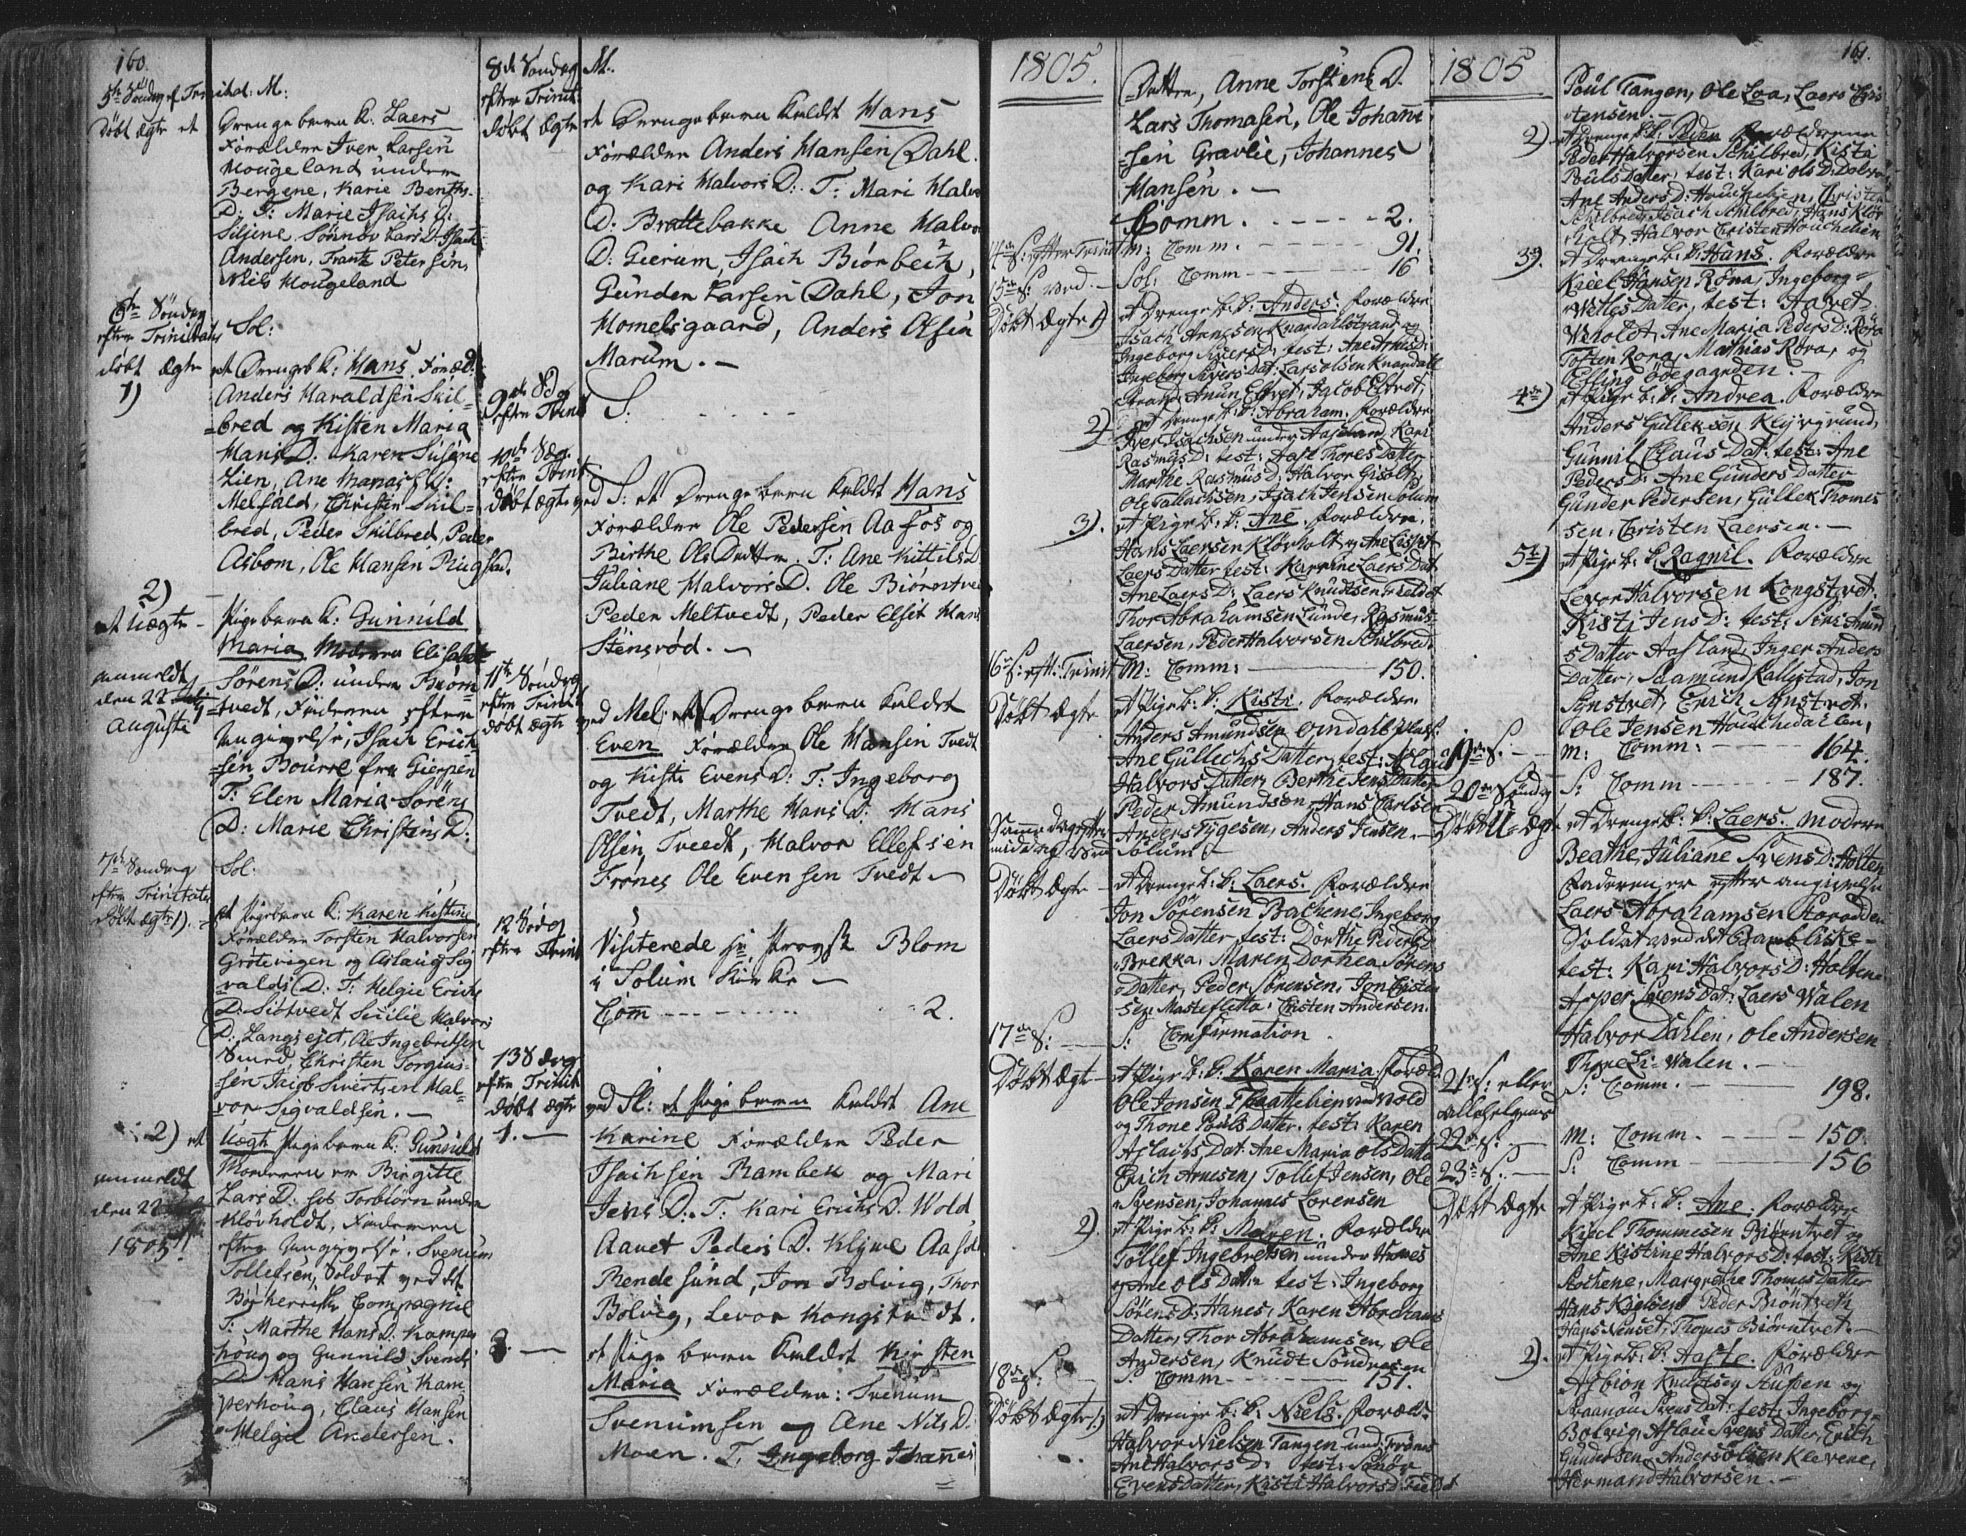 160.
5te Söndag ef Trinitat: M:
Döbt Ægte et
Drenge barn k: Laers
Forældre Iver Larsen
Hougeland under
Bergene, Karie Benths
D: T: Marie Isachs D:
Siljene, Sønnov Lars D: Isach
Andersen, Frantz Petersen,
Niels Hougeland
6te Söndag
efter Trinitatis
Sol:
döbt Ægte
1)
et Drengeb k: Hans, Foræld:
Anders Haraldsen Skil-
bred og Kisten Maria
Hans D: Karen Susine
Lien, Ane Mariais D:
Melfald, Christen Skil-
bred, Peder Skilbred, Peder
Asbom, Ole Hansen
2)
et Uægte
Pigebarn k: Gunnild
Maria, Moderen Elisabet
Sörens D: under Biørn-
tvedt, Faderen efter
Angivelse, Isach Erich-
sen, Bourre fra Gierpen
T: Elen Maria Sörens
D: Marie Christens D:
anmeldt
den 22
Augusti
7de Søndag
efter Trinitatis
Døbt Ægte 1)
Sol:
et Pigebarn k: Karen Kistine
Forældre Torsten Halvorsen
Grotevigen og Aslaug Sig-
valds D: T: Helgie Erichs
D: Siøtvedt Sicilie Halvors
D: Langejet, Ole Ingebritsen
Smed, Christen Torgius-
sen Jacob Sivertsen Hal-
vor Sigvaldsen. —
2) et
Uægte Pigebarn k: Gunnild
Moderen er Birgitte
Lars D: Torbiørn under
Kløvholdt, Faderen
efter Angivelse, Svenum
Tollefsen, Soldat ved det
Compagnie
T: Marthe Hans D. Kamper-
houg og Gunnild Svends
D. Hans Hansen Kam-
perhoug, Claus Hansen
Helgie Andersen.
anmeldt
den 22
1805
8de Söndag
efter Trinit:
döbt Ægte
M.
et Drengebarn kaldet Hans
Forældre Anders Hansen Dahl
og Kari Halvors D: T: Mari Halvo
D: Brattebakke Anne Halvo
D: Gierum, Isach Biørbech,
Gunder Larsen Dahl, Jon
Homelsgaard, Anders Olsen
Marum. —
9de Sdg
efter Trinit
S:
10de Søg
efter Trinit
döbt Ægte
ved S: et Drengebarn kaldet Hans
Forældre Ole Pedersen Aafos og
Birthe Ols Datter T: Ane Kittils D
Juliane Halvors D. Ole Biørntve
Peder Meltvedt, Peder Hans
Stensrød. —
11te Søndag
efter Trinit
döbt Ægte
ved Mel: et Drengebarn kaldet
Even Forældre Ole Hansen Tvedt
og Kisti Evens D: T: Ingeborg
Tvedt, Marthe Hans D. Hans
Olsen Tveedt, Halvor Ellefsen
Frones Ole Evensen Tvedt —
12 Sødag
efter Trinit
Visiterede Provst Blom
i Solum Kirke —
Com - - - - - 2.
13 Sdag
efter Trinit
döbt Ægte
1. —
ved Sl: et Pigebarn kaldet Ane
Karine Forældre Peder
Isachsen Rambek og Mari
Jens D. T: Kari Erichs D. Wold
Aanet Peders D. Klyve Aase
Rendesund, Jon Bolvig, Thor
Bolvig, Levor Kongstvedt.
2. —
et Pige barn kaldet Kirsten
Maria Forældre: Svenum
Svenumsen og Ane Nils D
Moen. T. Ingeborg Johannes
1805.
Datter, Anne Torstens D.
Lars Thomasen, Ole Johanne-
sen Gravlie, Johannes
Hansen. —
Comm. - - - - - 2.
14de S: efter Trinit M: Comm. - - - 91.
15de S: ved — Sol: Comm - - - 16
Döbt Ægte 1)
et Drengeb: k: Anders. Forældre
Isach Arnesen Knardalstrand og
Ingeborg Sivers D: test: Ane Arnes D:
Ingeborg Sivers Dat: Lars Olsen Knardal
strand, Anun Elset, Jacob Elset.
2)
et Drengeb: k: Abraham, Forældre
Iver Isachsen under Aaseland, Kari
Rasmus D: test: Aase Thores Datter
Marthe Rasmus D: Halvor Gisolt,
Ole Isachsen, Isach Jensen Solum
3).
et Pigeb: k: Ane. Forældre
Hans Laersen Kløvholt og Ane Lisbet
Laers Datter test: Karrine Laers Dat
Ane Laers D: Laers Knudtsen Feldet
Thor Abrahamsen Lunde, Rasmus
Laersen, Peder Halvorsen Schilbred.
16de S: eft: Trinit M: Comm: — 150.
Döbt Ægte
et Pigeb: k: Kisti. Forældre
Anders Amundsen Omdals plas:
Ane Gullechs Datter, test: Aslau
Halvors Datter, Berthe Jens Datter
Peder Amundsen, Hans Carlsen
Anders Tygesen, Anders Jensen.
Samme Dag efter
middag ved Solum
Döbt Ægte —
et Drengeb: k: Laers. Forældre
Jon Sörensen Bachene, Ingeborg
Laers Datter, test: Dorthe Peders D
Brekka, Maren Dorthea Sörens
Datter, Peder Sörensen, Jon Cristen
sen Mastefletta, Cristen Andersen.
17de S: — S: Confirmation
Döbt Ægt —
et Pigeb: k: Karen Maria. Foræld:
Ole Jonsen Traatteliev under Vold
og Thone Pouls Datter. test: Karen
Aslachs Dat: Ane Maria Ols Datter
Erich Arnesen, Tollef Jensen, Ole
Svensen, Johannes Lorensen
2).
et Pigeb: k: Maren. Forældre
Tollef Ingebretsen under Hanes
og Ane Ols Dat: test: Ingeborg
Sörens D: Hanes, Karen Abrahams
Datter, Thor Abrahamsen, Ole
Andersen, Knudt Sondresen
18de S: — S: Comm — 151.
Döbt Ægte 1)
et Drengeb: k: Niels. Foræld:
Halvor Nielsen Tangen und: Frönes
Ane Halvors D: test: Sönov
Evens Datter, Kisti Halvors D: Field
1805
161.
Poul Tangen, Ole Loa, Laers Cris-
tensen. —
2)
et Drengeb: k: Peder Forældrene
Peder Halvorsen Schilbred, Kisti
Pouls Datter, test: Kari Ols D: Dolva
Ane Anders D: Houchelien, Cristen
Schilbred, Isach Schilbred, Hans Kløv
holt, Halvor Cristen Houchelien
3).
et Drengeb: k: Hans. Forældre
Kieel Hansen Röra, Ingeborg
Vetles Datter, test: Halvet
Veholdt, Ane Maria Peders D: Röra
Tosten Rora, Mathias Rora, og
Efling Ödegaarden. —
4de)
et Pigeb: k: Andrea. Forældre
Anders Gulleksen Klyvgrund,
Gunnil Claus Dat: test: Ane
Peders D: Ane Gunders Datter
Gunder Pedersen, Gullek Thomes
sen, Cristen Laersen. —
5te)
et Pigeb: k: Ragnil. Forældre
Levor Halvorsen Kongstvet.
Kisti Jens D: test: Siri Amund
s Datter Aasland, Inger Anders
Datter, Saamund Kallestad, Jon
Anstvet, Erich Anstvet.
Ole Jensen Houchedahlen,
19de S: — M: Comm: — 164.
20de Söndag S: Comm — 187.
Döbt U-Ægte
et Drengeb: k: Laers. Moderen
Beathe Juliane Svens D: Holten
Faderen er efter angivelse
Laers Abrahamsen Rorodden
Soldat ved det Bambliske.
test: Kari Halvors D: Holtene
Asper Svens Dat: Laers Walen
Halvor Dahlen, Ole Andersen
Walen. —
21de S: eller
Allehelgens
S: Comm. — 198.
22de S: — M: Comm. — 150.
23de S: — S: Comm — 156
Döbt Ægte
et Pigeb: k: Ane. Forældre
Kieel Thommesen Biörntvet og
Ane Kistine Halvors D: test: Kisti
Aochene, Margrethe Thomes Datter
Hans Kielsen Peder Biörntvet,
Hans Nenset, Thomes Biørntvet. —
2).
et Pigeb: k: Aaste. Forældre
Asbion Knudtsen og
Svens Dat: test: Ingeborg
Bolvig, Aslau Svens Datter, Erich
Gundersen, Anders Olsen Klevene,
Hermand Halvorsen. —